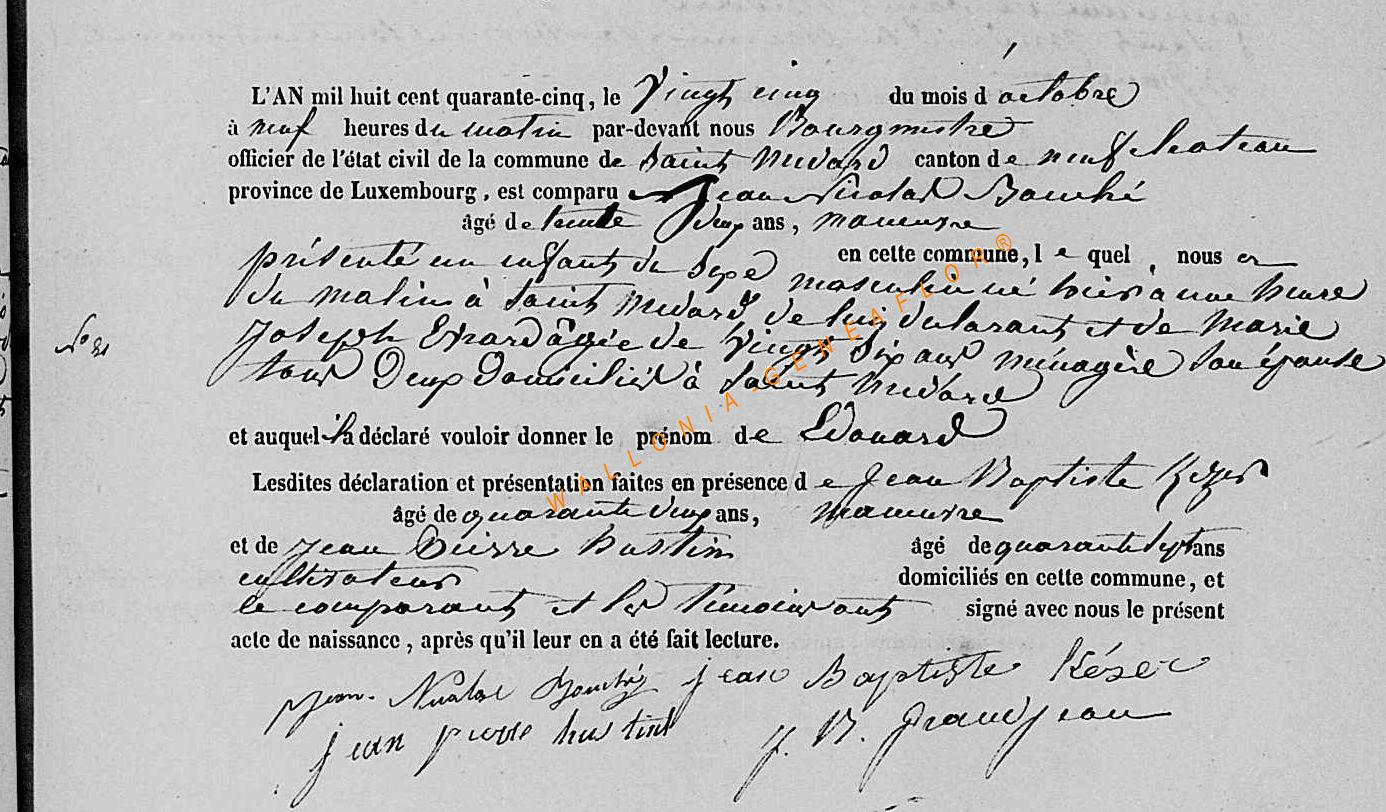 L'AN mil huit cent quarante-cinq, le Vingt cinq du mois d'octobre
à neuf heures du matin par-devant nous Bourgmestre
officier de l'état civil de la commune de Saint Médard canton de neufchateau
province de Luxembourg, est comparu Jean Nicolas Bouché
âgé de trente deux ans, manœuvre
en cette commune, lequel nous a
présenté un enfant du sexe masculin né hier à une heure
du matin à Saint Médard de lui déclarant et de Marie
Joseph Evrard âgée de Vingt six ans ménagère son épouse
tous Deux Domiciliés à Saint Médard
N° 31
et auquel il a déclaré vouloir donner le prénom de Edouard
Lesdites déclaration et présentation faites en présence de Jean Baptiste Kezer
âgé de quarante deux ans, manœuvre
et de Jean Pierre hustin âgé de quarante sept ans
cultivateur domiciliés en cette commune, et
le comparant et les témoins ont signé avec nous le présent
acte de naissance, après qu'il leur en a été fait lecture.
Jean Nicolas Bouché jean Baptiste Késer
jean pierre hustin J. N. Grandjean
WALLONIA-GENEAFLOR®